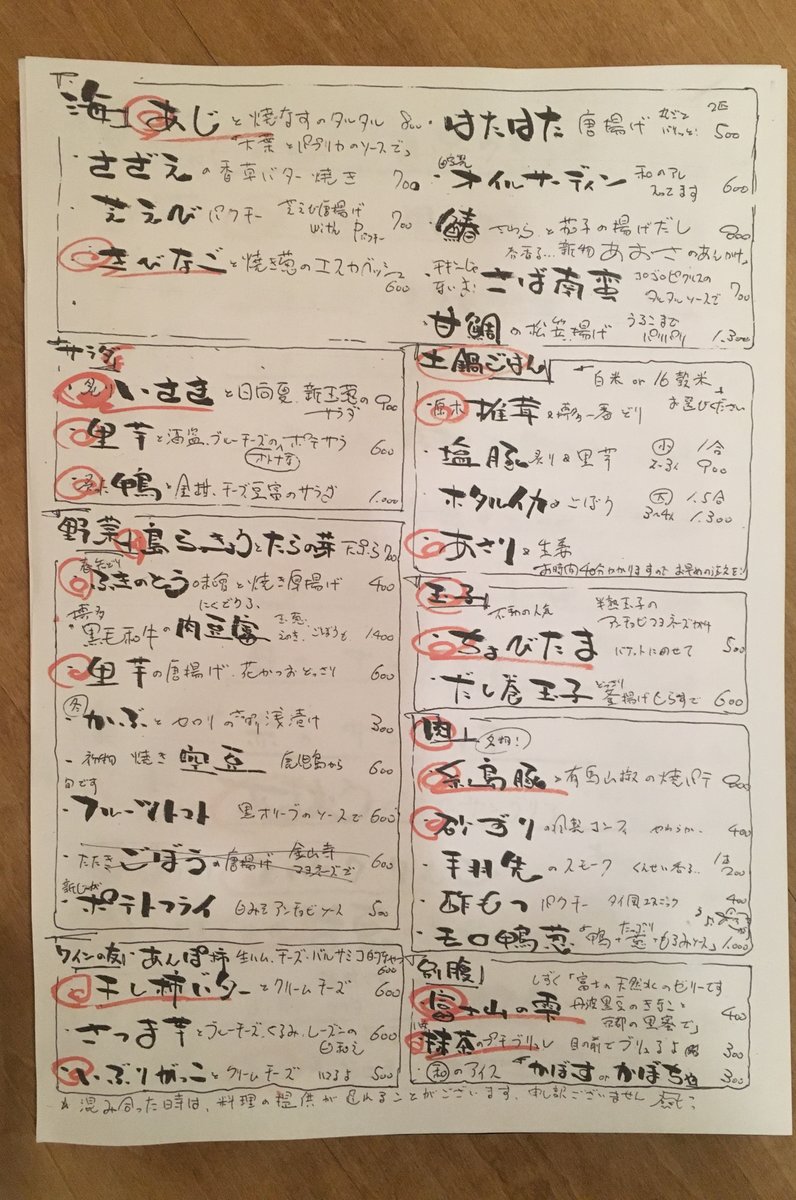 海
・あじと焼なすのタルタル 800
大葉とパプリカのソースで
・さざえの香草バター焼き 700
・芝えびパクチー 芝えび唐揚げ with パクチー 700
・きびなごと焼き葱のエスカベッシュ 600
・はたはた 唐揚げ 2匹 500
自家製
・オイルサーディン 和のアレ 入ってます 600
・鰆 さわらと茄子の揚げだし 800
春香る…新物あおさのあんかけ
・さば南蛮 ゴロゴロピクルスの タルタルソースで 700
・甘鯛の松笠揚げ うろこまで パリパリ 1.300
サラダ
・炙りいさきと日向夏、新玉葱の サラダ 900
・里芋と酒盗、ブルーチーズのポテサラ 600
オトナな
・鴨と金柑、チーズ豆富のサラダ 1.000
土鍋ごはん
白米 or 16穀米 お選びください
・原木椎茸&博多一番どり
・塩豚炙り&里芋
・ホタルイカ&ごぼう
・あさり&生姜
小 2~3人 1合 900
大 3~4人 1.5合 1.300
お時間40分かかりますので お早めの注文を
野菜
・島らっきょうとたらの芽 天ぷら 700
春先どり
・ふきのとう味噌と焼き厚揚げ 400
にくどうふ
・博多黒毛和牛の肉豆富 玉葱 えのき、ごぼうも 1400
・里芋の唐揚げ、花かつおどっさり 600
・冬かぶとセロリの浅漬け 300
・初物 焼き 空豆 鹿児島から 600
旬です
・フルーツトマト 黒オリーブのソースで 600
・たたきごぼうの唐揚げ 金山寺 マヨネーズで 600
新じゃが
・ポテトフライ 白みそアンチョビソース 500
玉子
不動の人気
・ちょびたま 半熟玉子の アンチョビマヨネーズがけ バゲットにのせて 500
・だし巻玉子 どっさり 釜揚げしらすで 600
肉
名物!
・糸島豚と有馬山椒の焼パテ 800
・砂ずりの コンフィ やわらか 400
・手羽先のスモーク くんせい香る… 1本 200
・酢もつ パクチー タイ風エスニック 400
・モロ鴨葱 「鴨+葱+もろみソース」 1.000
たっぷり
ワインの友
・あんぽ柿 生ハム、チーズ・バルサミコ 600
・干し柿バターとクリームチーズ 600
・さつま芋とブルーチーズ、くるみ、レーズンの 白和え 600
・いぶりがっことクリームチーズ 500
別腹
しずく「富士の天然水のゼリーです
・富士山の雫 丹波黒豆のきなこと 京都の黒蜜で」 400
・抹茶のプチブリュレ 目の前でブリュるよ 300
・和のアイス 「かぼす or かぼちゃ」 300
※混み合った時は、料理の提供が遅れることがございます。申し訳ございません